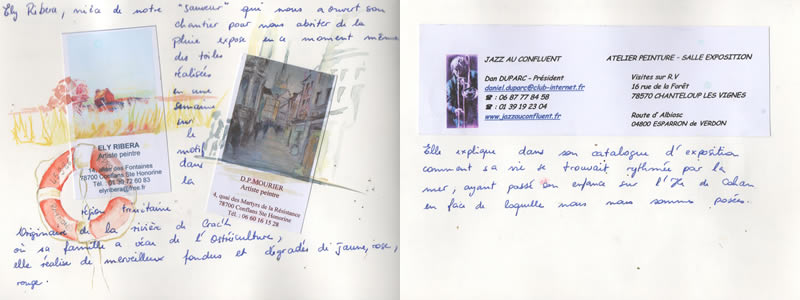 Ely Ribera, nièce de notre "sauveur" qui nous a ouvert son
chantier pour nous abriter de la
pluie expose en ce moment même
des toiles
réalisées
en une
semaine
sur
le
motif
dans
la
région trinitaine
Originaire de la rivière de Crac'h
où sa famille a vécu de l'Ostréiculture,
elle réalise de merveilleux fondus et dégradés de jaune, rose,
rouge.
ELY RIBERA
Artiste peintre
14, allée des Fontaines
78700 Conflans Ste Honorine
Tél. : 01 39 72 60 83
elyribera@free.fr
D.P. MOURIER
Artiste peintre
4, quai des Martyrs de la Résistance
78700 Conflans Ste Honorine
Tél. : 06 60 16 15 28
JAZZ AU CONFLUENT
Dan DUPARC - Président
daniel.duparc@club-internet.fr
☎ : 06 87 77 84 58
☎ : 01 39 19 23 04
www.jazzauconfluent.fr
ATELIER PEINTURE - SALLE EXPOSITION
Visites sur R.V
16 rue de la Forêt
78570 CHANTELOUP LES VIGNES
Route d'Albiosc
04800 ESPARRON de VERDON
Elle explique dans son catalogue d'exposition
comment sa vie se trouvait rythmée par la
mer, ayant passé son enfance sur l'Ile de Cuhan
en face de laquelle nous nous sommes posés.